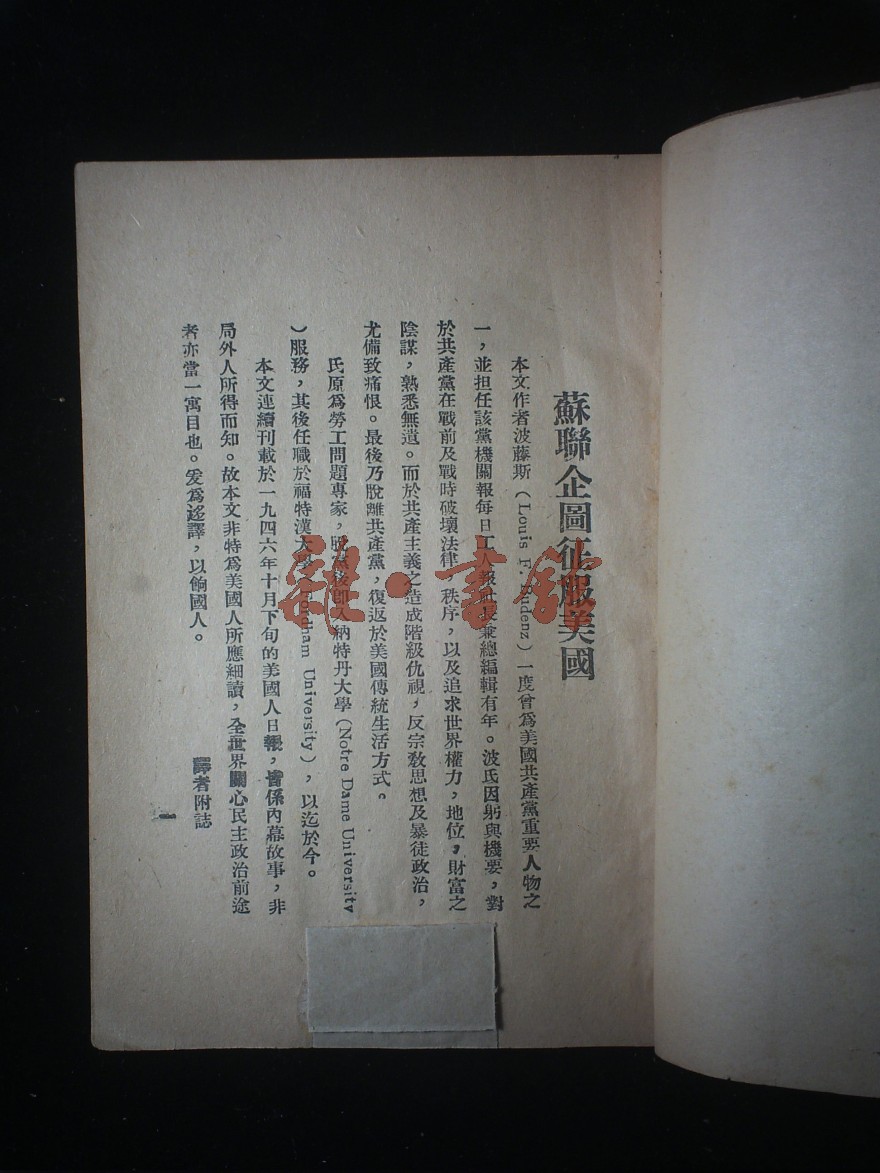 蘇聯企圖征服美國
本文作者波藤斯(Louis F. Budenz)一度曾爲美國共產黨重要人物之
一,並担任該黨機關報每日工人報社長兼總編輯有年。波氏因躬與機要,對
於共產黨在戰前及戰時破壞法律,秩序,以及追求世界權力,地位,財富之
陰謀,熟悉無遺。而於共產主義之造成階級仇視,反宗敎思想及暴徒政治,
尤備致痛恨。最後乃脫離共產黨,復返於美國傳統生活方式。
氏原爲勞工問題專家,脫黨後卽入納特丹大學(Notre Dame University
)服務,其後任職於福特漢大學(Fordham University),以迄於今。
本文連續刊載於一九四六年十月下旬的美國人日報,皆係內幕故事,非
局外人所得而知。故本文非特爲美國人所應細讀,全世界關心民主政治前途
者亦當一寓目也。爰爲迻譯,以餉國人。
譯者附誌
一
雜·書館